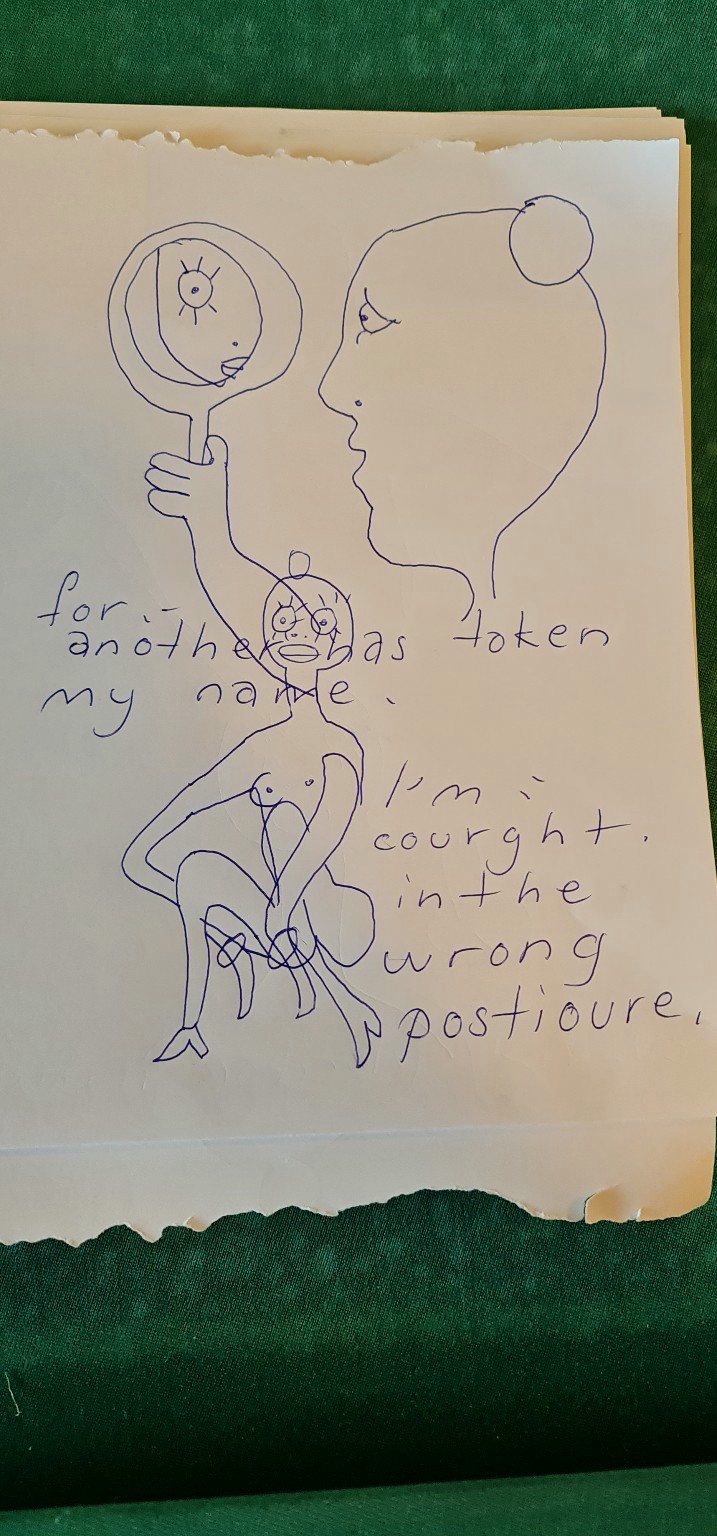 for.-
another has token
my name.
I'm
courght.
in the
wrong
postioure,